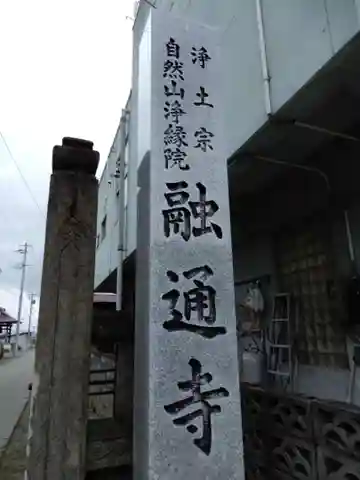 浄土宗
自然山浄縁院
融通寺